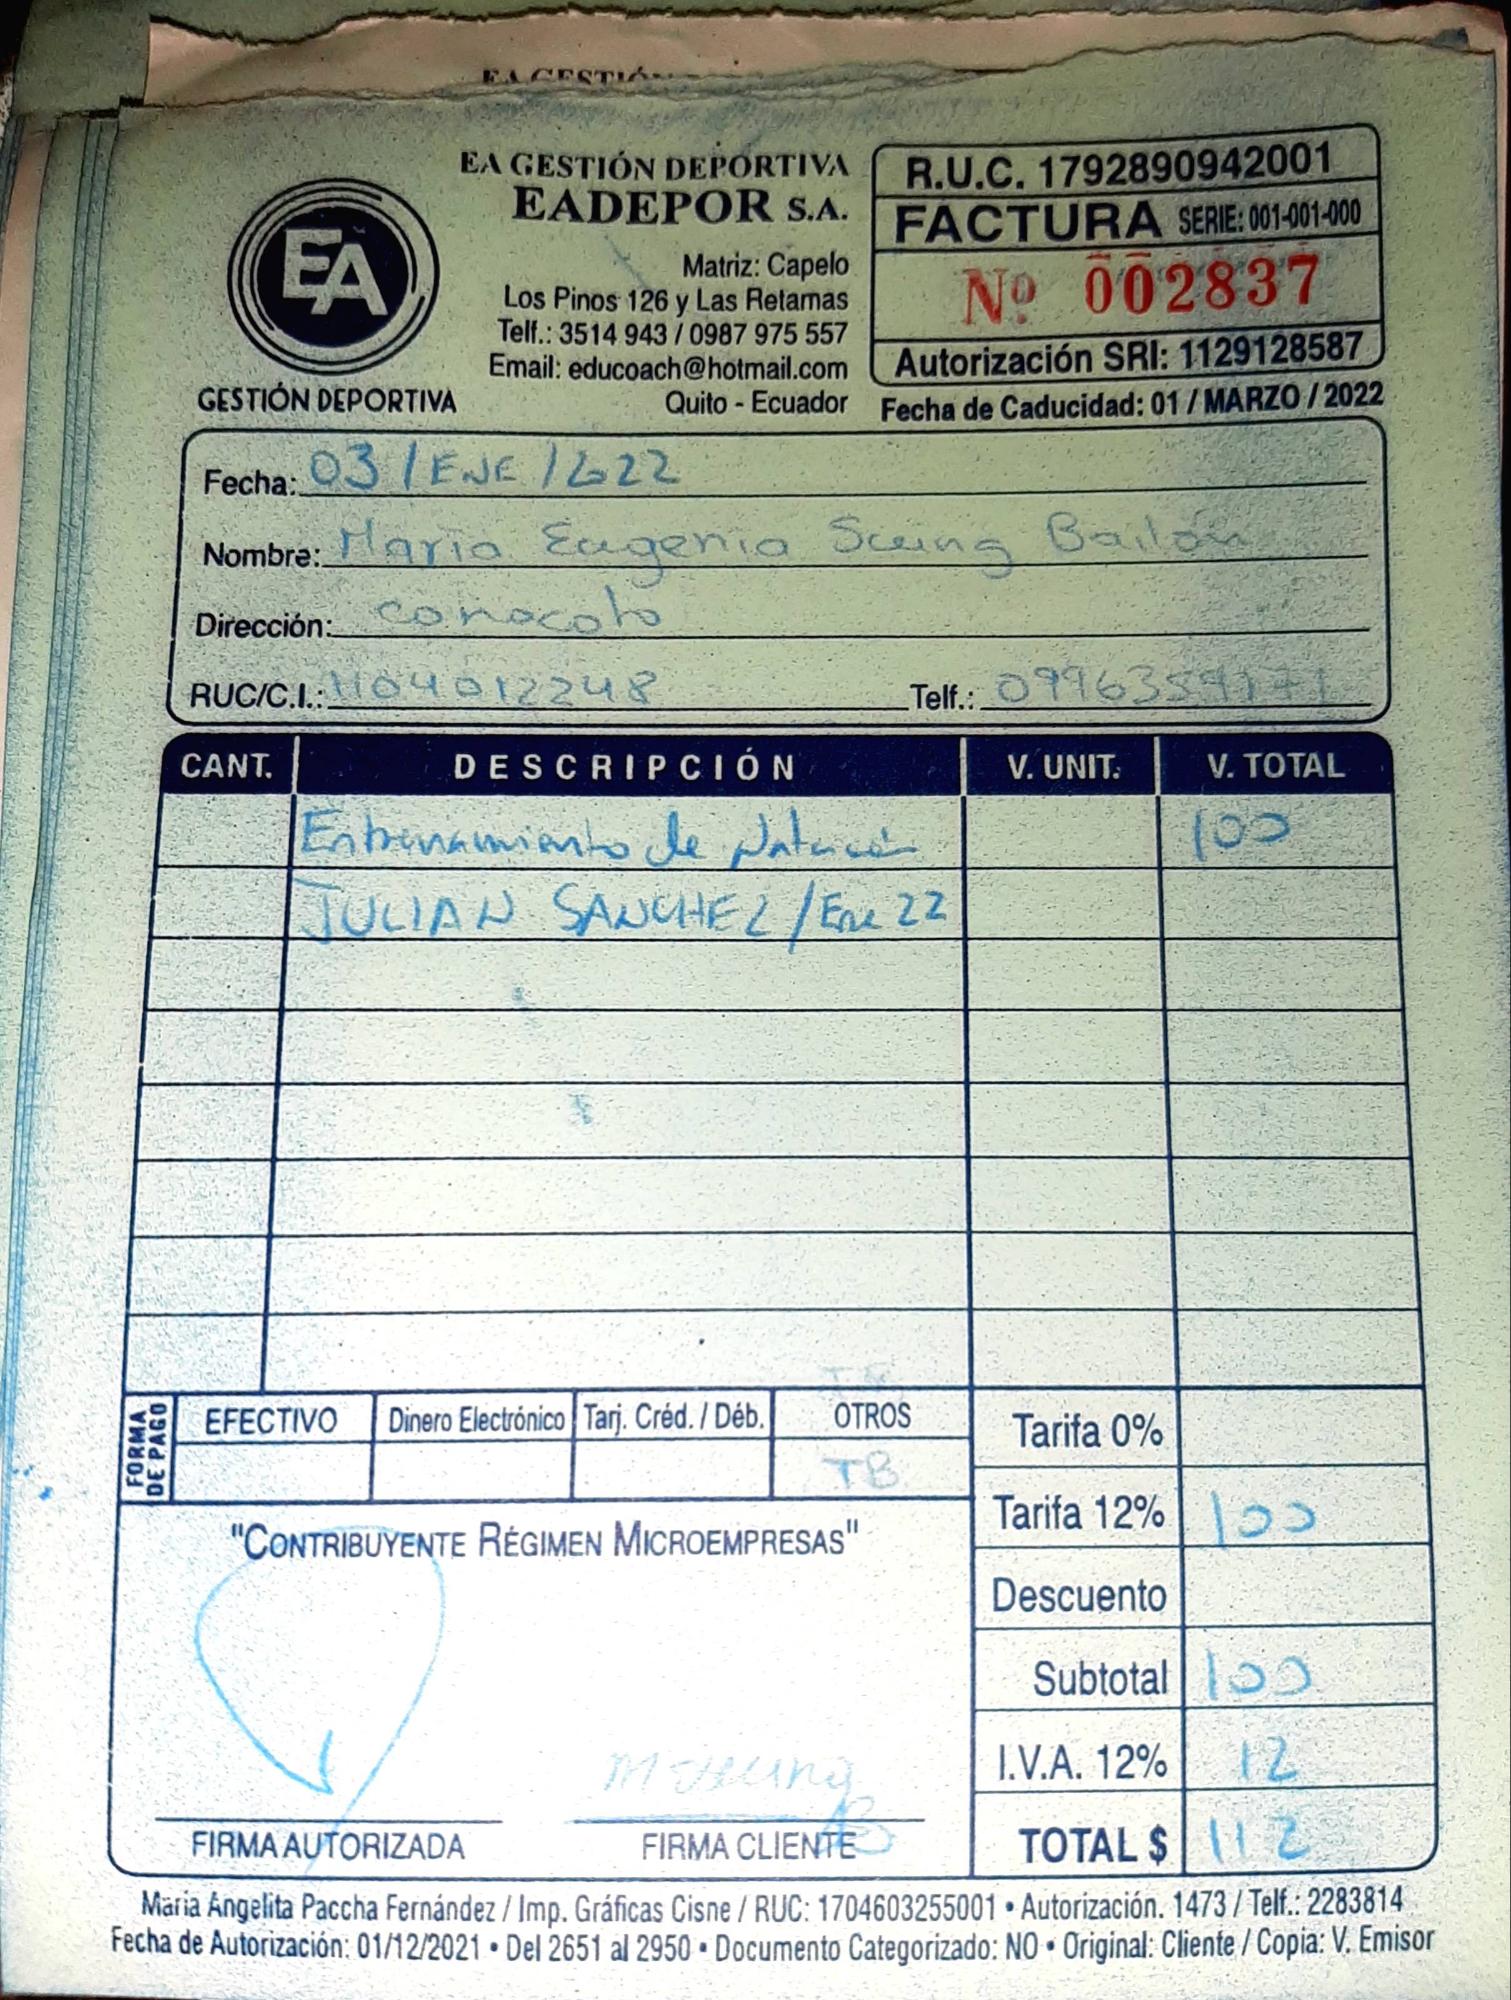 EA GESTIÓN
EA GESTIÓN DEPORTIVA
EADEPOR S.A.
EA
GESTIÓN DEPORTIVA
Matriz: Capelo
Los Pinos 126 y Las Retamas
Telf.: 3514 943 / 0987 975 557
Email: educoach@hotmail.com
Quito - Ecuador
R.U.C. 1792890942001
FACTURA SERIE: 001-001-000
Nº 002837
Autorización SRI: 1129128587
Fecha de Caducidad: 01 / MARZO / 2022
Fecha: 03 / ENE / 2022
Nombre: Maria Eugenia Bailón
Dirección: conocoto
RUC/C.I.: 1104012248 Telf.:
CANT. DESCRIPCIÓN V. UNIT. V. TOTAL
Entrenamiento de Natación 100
JULIAN SANCHEZ / Ene 22
FORMA DE PAGO
EFECTIVO Dinero Electrónico Tarj. Créd. / Déb. OTROS
TB
Tarifa 0%
Tarifa 12% 100
Descuento
Subtotal 100
I.V.A. 12% 12
TOTAL $ 112
"CONTRIBUYENTE RÉGIMEN MICROEMPRESAS"
FIRMA AUTORIZADA FIRMA CLIENTE
Maria Angelita Paccha Fernández / Imp. Gráficas Cisne / RUC: 1704603255001 • Autorización. 1473 / Telf.: 2283814
Fecha de Autorización: 01/12/2021 • Del 2651 al 2950 • Documento Categorizado: NO • Original: Cliente / Copia: V. Emisor